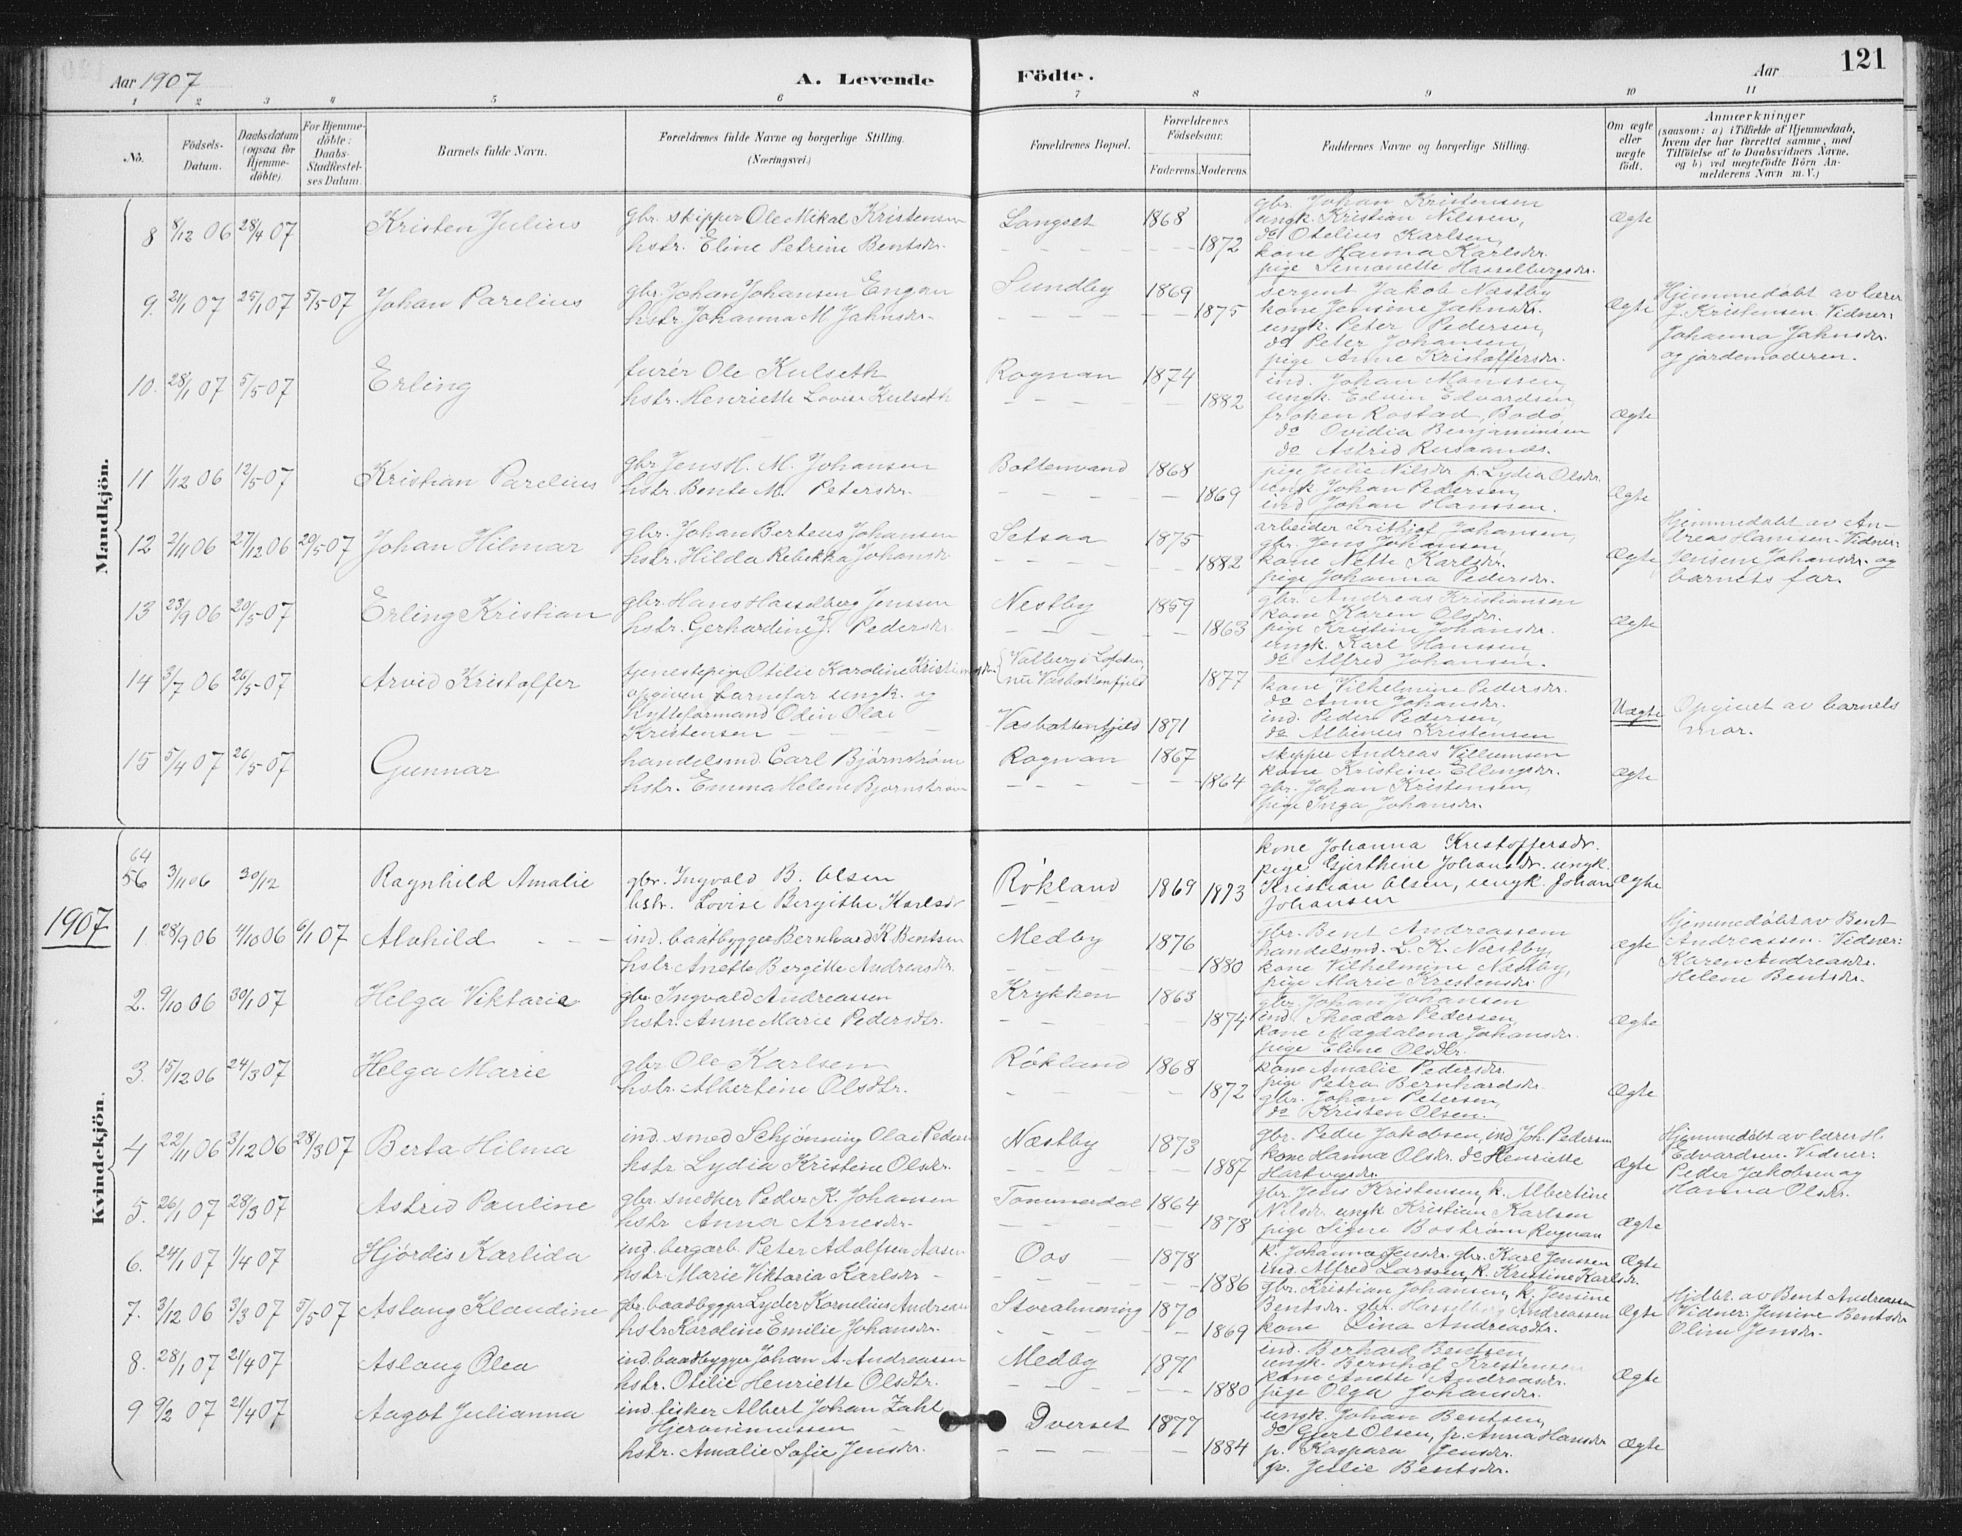 Aar 1907
A. Levende Födte.
Aar
121
1 2 3 4 5 6 7 8 9 10 11
No.
Födsels-Datum.
Daabsdatum (ogsaa for Hjemme-döbte).
For Hjemme-döbte: Daabs-Stadfæstel-ses Datum.
Barnets fulde Navn.
Forældrenes fulde Navne og borgerlige Stilling. (Næringsvei.)
Forældrenes Bopæl.
Forældrenes Födselsaar.
Faderens. Moderens.
Faddernes Navne og borgerlige Stilling.
Om ægte eller uægte födt.
Anmærkninger
(saasom: a) i Tilfælde af Hjemmedaab, hvem der har forrettet samme, med Tilföielse af to Daabsvidners Navne, og b) ved uegtefödte Börn An-melderens Navn m. V.)
Mandkjön.
8 8/12 06 28/4 07 Kristen Julius
gbr. skipper Ole Mikal Kristensen
hstr. Eline Petrine Bentsdr.
Langset 1868
1872
gbr. Johan Kristensen
ungk. Kristian Nilsen,
do Otelius Karlsen,
kone Hanna Karlsdr.
pige Simonette Hasselbergsdr.
Ægte
9. 21/1 07 25/1 07 5/5 07 Johan Parelius
gbr. Johan Johansen Engan
hstr. Johanna M. Jahnsdr.
Sundby 1869
1875
sergent Jakob Næstby
kone Jensine Jahnsdr.
ungk. Peter Pedersen,
do Peter Johansen,
pige Anne Kristoffersdr.
Ægte
Hjemmedøbt av lærer
J. Kristensen. Vidner:
Johanna Jahnsdr.
og jordemoderen.
10. 28/1 07 5/5 07 Erling
furér Ole Kulseth
hstr. Henriette Lovise Kulseth
Rognan 1874
1882
ind. Johan Monssen,
ungk. Edvin Edvardsen,
frøken Rostad, Bodø,
do Ovidia Benjaminsen
do Astrid Rusaanes.
Ægte
11 1/12 06 12/5 07 Kristian Parelius
gbr. Jens H. M. Johansen
hstr. Bente M. Petersdr.
Bottenvand 1868
1869
pige Julie Nilsdr. p. Lydia Olsdr.
ungk Johan Pedersen,
ind Johan Hanssen.
Ægte
12 2/11 06 27/12 06 20/5 07 Johan Hilmar
gbr. Johan Berteus Johansen
hstr. Hilda Rebekka Johansdr.
Setsaa 1875
1882
arbeider Frithjof Johansen,
gbr. Jens Johansen,
kone Nette Karlsdr.
pige Johanna Pedersdr.
Ægte
Hjemmedøbt av An-
dreas Hansen. Vidner:
Jensine Johansdr. og
barnets far.
13 23/9 06 20/5 07 Erling Kristian
gbr. Hans Hasselberg Jenssen
hstr. Gerhardine J. Pedersdr.
Nestby 1859
1863
gbr. Andreas Kristiansen
kone Karen Olsdr.
pige Kristine Johansdr.
ungk. Karl Hanssen,
do Alfred Johansen.
Ægte
14 3/7 06 26/5 07 Arvid Kristoffer
tjenestepige Otilie Karoline Kristiansdr.
opgiven barnefar ungk. og
Kristensen
Valberg i Lofoten,
nu Vasbottenfjeld
1877
Vasbottenfjeld 1871
kone Vilhelmine Pedersdr.
do Anne Johansdr.
ind. Peder Pedersen,
do Albinus Kristensen
Uægte
Opgivet av barnets
mor.
15 5/4 07 26/5 07 Gunnar
handelsmd. Carl Bjørnstrøm
hstr. Emma Helene Bjørnstrøm
Rognan 1867
1864
skipper Andreas Villumsen
kone Kristine Ellingsdr.
gbr. Johan Kristensen,
pige Inga Johansdr.
Ægte
Kvindekjön.
64
56 3/11 06 30/12 Ragnhild Amalie
gbr. Ingvald B. Olsen
hstr. Lovise Bergithe Karlsdr
Røkland 1869 1873
kone Johanna Kristoffersdr.
pige Gjerthine Johansdr. ungk.
Kristian Olsen, ungk. Johan
Johansen
Ægte
1907
1. 28/9 06 4/10 06 6/1 07 Alvhild
ind. baatbygger Bernhard K. Bentsen
hstr Anette Bergitte Andreasdr.
Medby 1876
1880
gbr. Bent Andreassen
handelsmd. L. K. Næstby,
kone Vilhelmine Næstby,
pige Marie Kristensdr.
Ægte
Hjemmedøbt av Bent
Andreassen. Vidner:
Karen Andreasdr.
Helene Bentsdr.
2. 9/10 06 30/1 07 Helga Viktoria
gbr Ingvald Andreassen
hstr. Anne Marie Pedersdtr.
Krykken 1863
1874
gbr. Johan Johansen
ind. Theodor Pedersen,
kone Magdalena Johansdr.
pige Eline Olsdtr.
Ægte
3. 15/12 06 24/3 07 Helga Marie
gbr Ole Karlsen
hstr. Albertine Olsdtr.
Røkland 1868
1872
kone Amalie Pedersdr.
pige Petra Bernhardsdr.
gbr. Johan Petersen,
do Kristen Olsen.
Ægte
4 22/11 06 3/12 06 28/3 07 Berta Hilma
ind. smed Schjønning Olai Peders
hstr Lydia Kristine Olsdr.
Næstby 1873
1887
gbr. Peder Jakobsen, ind Joh. Pedersen
kone Hanna Olsdr. do Henriette
Hartvigsdr.
Ægte
Hjemmedøbt av lærer H.
Edvardsen. Vidner:
Peder Jakobsen og
Hanna Olsdr.
5. 26/1 07 28/3 07 Astrid Pauline
gbr snedker Peder K. Johansen
hstr Anna Arnesdr.
Tømmerdal 1864
1878
gbr. Jens Kristensen, k. Albertine
Nilsdr. ungk Kristian Karlsen
pige Signe Bostrøm Rognan
Ægte
6. 24/1 07 1/4 07 Hjørdis Karlida
ind. bergarb. Peter Adolfsen
hstr. Marie Viktoria Karlsdr
Oos 1878
1886
k. Johanna Jensdr. gbr. Karl Jenssen
ind Alfred Larssen, k. Kristine Karlsdr.
Ægte
7. 3/12 06 3/3 07 5/5 07 Aslaug Klaudine
gbr. baadbygger Lyder Kornelius Andreasen
hstr Karoline Emilie Johansdr.
Storalmening 1870
1869
gbr. Kristian Johansen, k. Jensine
Bentsdr. gbr. Hasselberg Andreassen
kone Lina Andreasdtr.
Ægte
Hjdbt. av Bent Andreassen
Vidner: Jensine Bentsdr
Oline Jensdr.
8. 28/1 07 21/4 07 Aslaug Olea
ind. baadbygger Johan A. Andreassen
hstr. Otilie Henriette Olsdtr.
Medby 1871
1880
ind. Berhard Bentsen,
ungk. Bernhof Kristensen
kone Anette Andreasdr.
pige Olga Johansdr.
Ægte
9 9/2 07 21/4 07 Aagot Julianna
ind. fisker Albert Johan Zahl
Hjeronimussen
hstr. Amalie Sofie Jensdr.
Dverset 1877
1884
ungk. Johan Bentsen,
do Gjert Olsen, p. Anna Hansdr
p. Kaspara Jensdr.
p. Julie Bentsdr.
Ægte